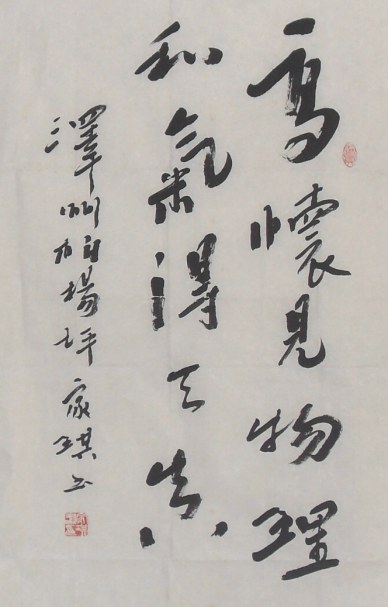 高懷見物理
和氣得天真
澤州柏楊坪家琪书